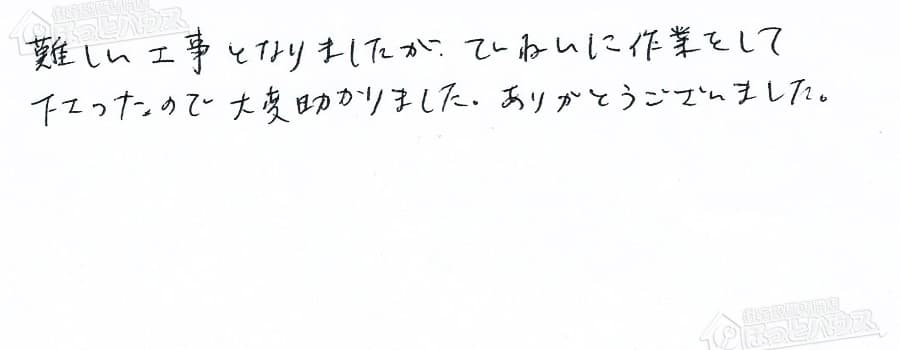 難しい工事となりましたが、ていねいに作業をして
下さったので大変助かりました。ありがとうございました。
ほっとハウス
ほっとハウス